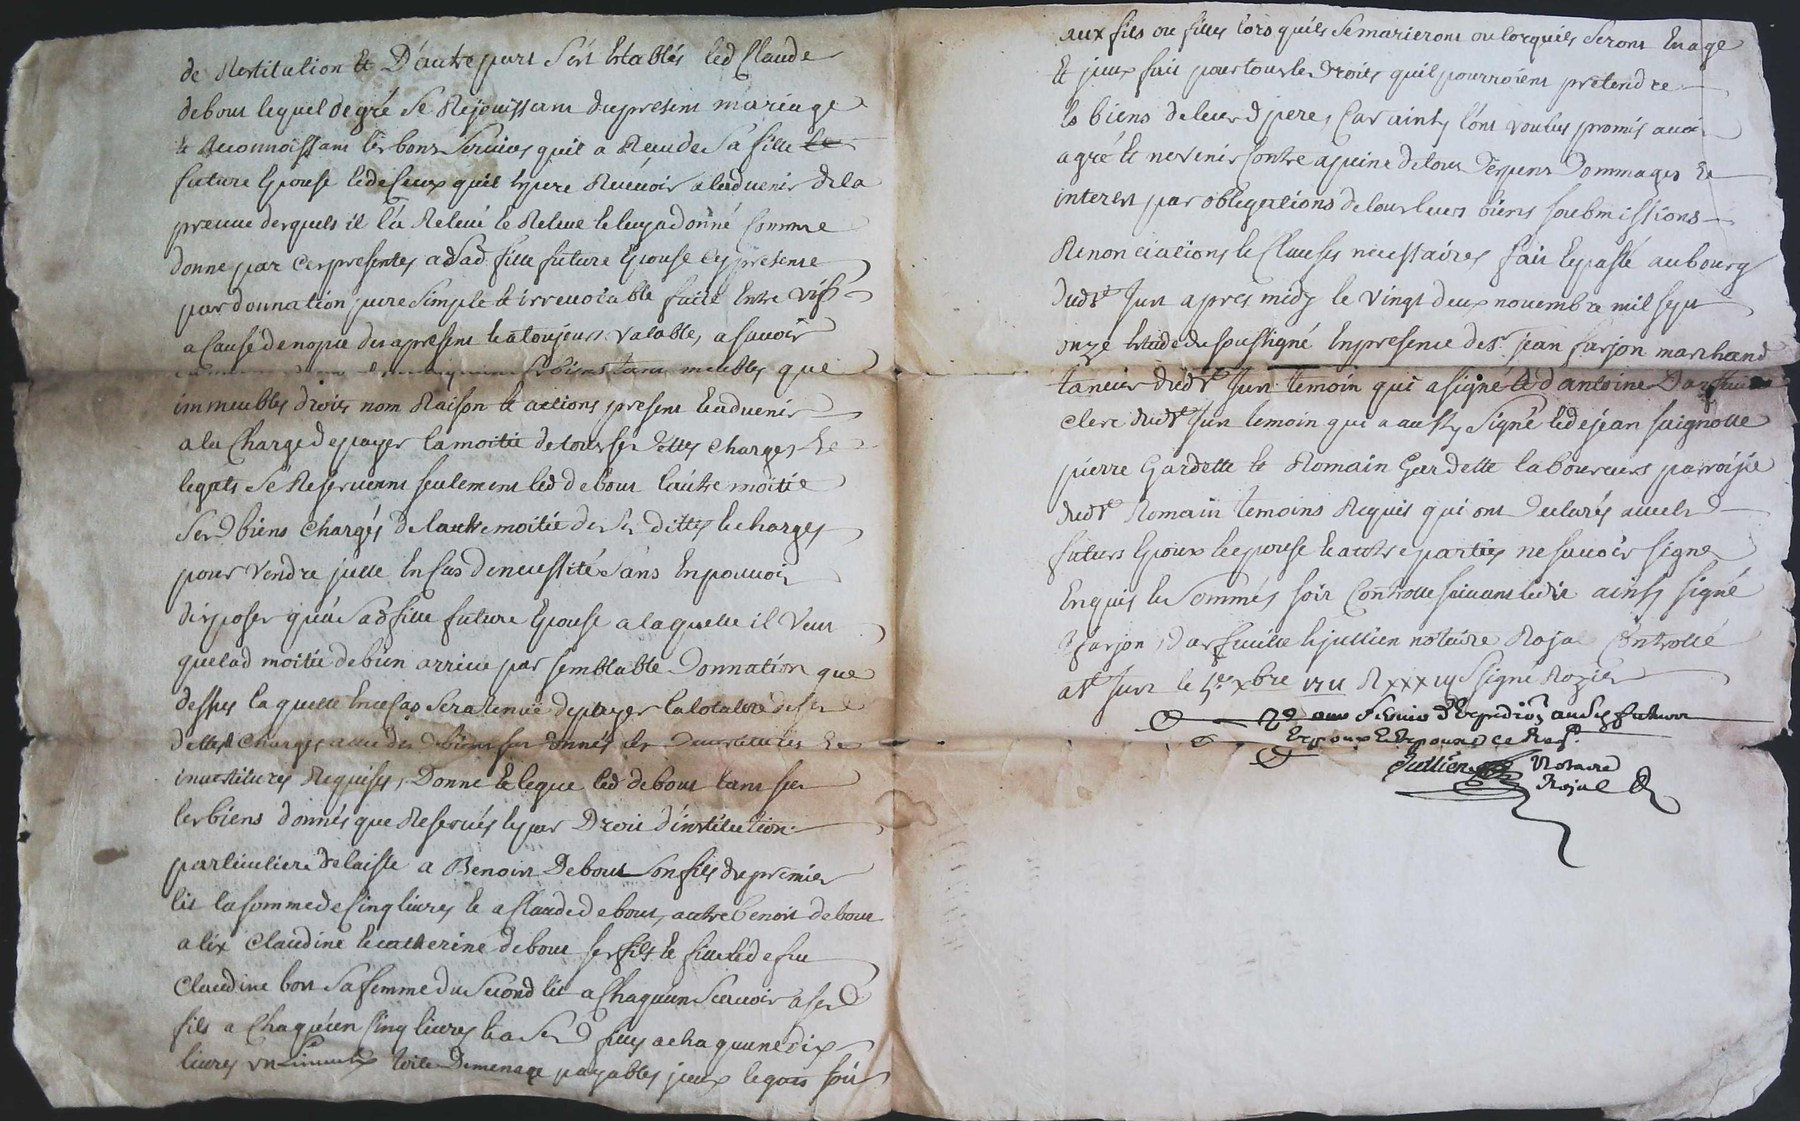 de Restitution et D'autre part s'est establés led Claude
debout lequel de gré se Rejouissant du present mariage
et Reconnoissant les bons services quil a Reçu de sa fille
future Epouse led ceux quil espere Recevoir a ladvenir de la
preuve desquels il l'a Relevé et Releve et luy a donné comme
donne par ces presentes a sad fille future Epouse Cy presente
par donnation pure simple et irrevocable faite Entre vifs
a Cause de nopce des apresent et a toujours valable, a savoir
meubles que
immeubles droits nom Raison et actions present et advenir
a la Charge de payer la moitié de tous ses dettes charges et
legats se Reservant seulement led debout lautre moitié
sesd biens chargés de lautre moitié des ses dittes et charges
pour vendre jcelle En Cas de necessité sans En pouvoir
disposer qu'a sad fille future Epouse a laquelle il veut
quelad moitié de bien arrive par semblable Donnation que
dessus laquelle En ce Cas sera tenue de payer la totalité de ses
dettes Charges avec des
investitures Requises, Donne et legue led debout tant sur
les biens donnés que Reservés et par Droit d'institution
particuliere delaisse a Benoist Debout son fils du premier
lit la somme de Cinq livres et a Claude debout, autre benoit debout
alix Claudine et catherine debout ses fils et filles de feu
Claudine bost sa femme du second lit a Chaquun scavoir a sesd
fils a Chaquun Cinq livres et a sesd filles a chaquune dix
livres un toile de menage payables jceux legats soit
aux fils ou filles lors quils se marieront ou lorquils seront En age
et jceux fait pour tous les Droits quil pourroient pretendre
Es biens de leurd pere, Car ainsy l'ont voulus promis avoir
agré et ne venir Contre a peine de tous Despens Dommages et
interest par obligations de tous leurs biens soubmissions
Renonciations et Clauses necessaires fait et passé au bourg
dudt. Just apres midy le vingt deux novembre mil sept
onze Etude du soussigné En presence de sr. jean farjon marchand
taneur dudt. Just temoin qui a signé et d'antoine Darfeuille
clerc dudt Just temoin qui a aussy signé led jean saignolle
pierre Gardette et Romain Gardette laboureurs parroisse
dudt. Romain temoins Requis qui ont declarés avec lesd
futurs Epoux et Epouse et autre parties ne savoir signer
Enquis et sommés soit Controllé suivant ledit ainsy signé
farjon, darfeuille et jullien notaire Royal Controllé
a st. Just le xbre 1711 signé Rozier
Expedion ausd futurs
Espoux et Espouse ce Reqt.
Jullien Notaire
Royal